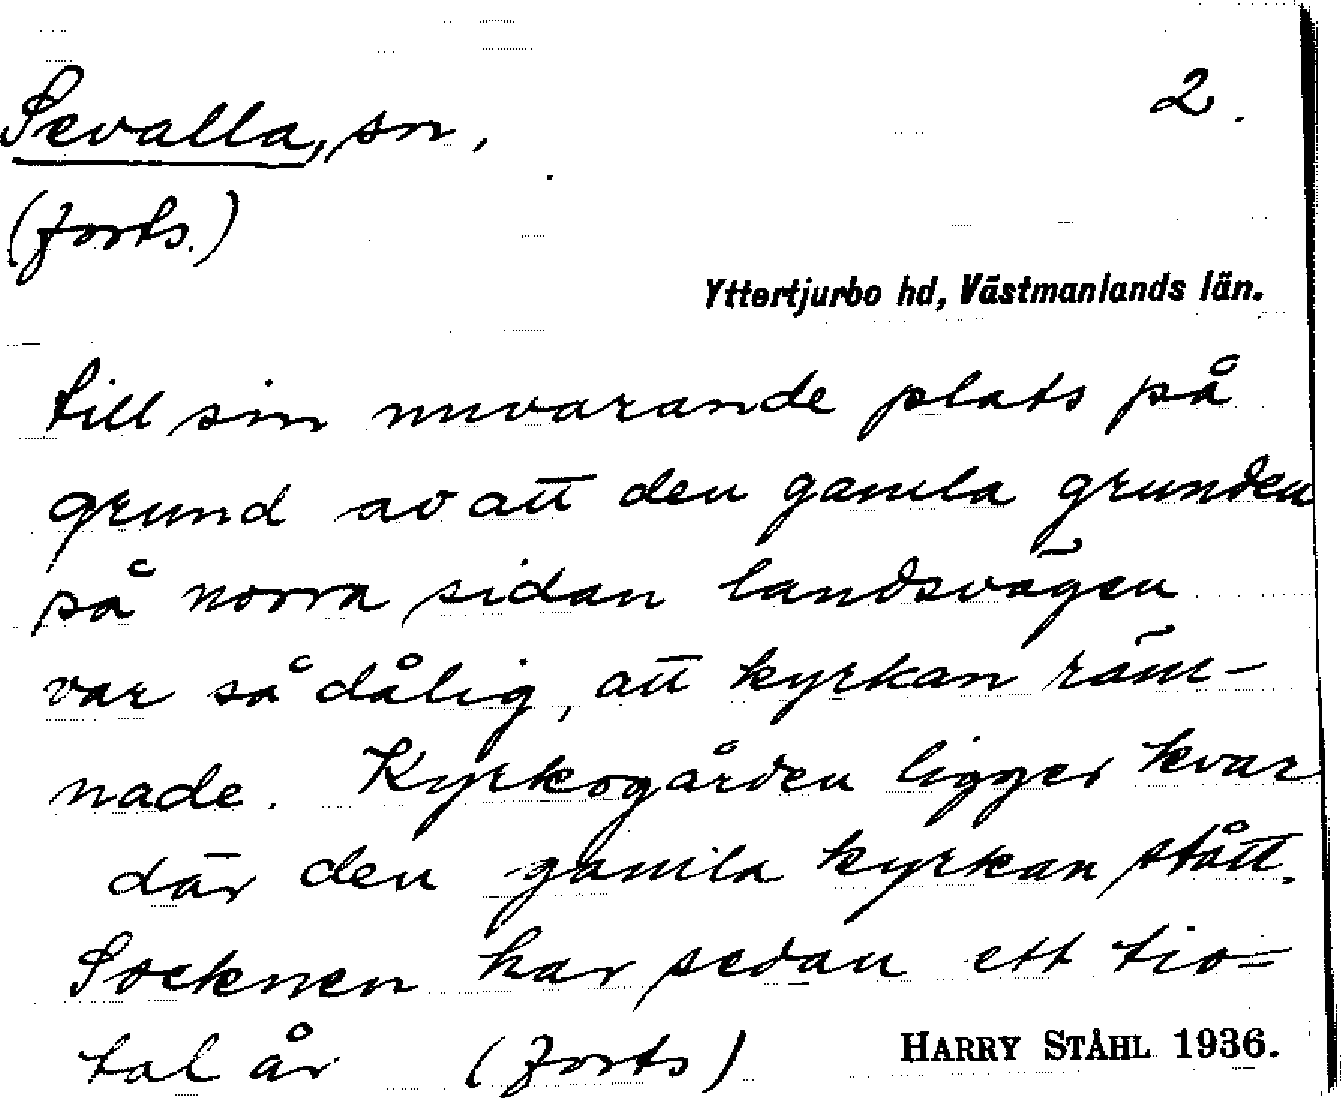 Sevalla, sn,
2.
(forts.)
Yttertjurbo hd, Västmanlands län.
till sin nuvarande plats på
grund av att den gamla grunden
på norra sidan landsvägen
var så dålig, att kyrkan räm-
nade. Kyrkogården ligger kvar
där den gamla kyrkan stått.
Socknen har sedan ett tio-
tal år (forts)
HARRY STÅHL 1936.